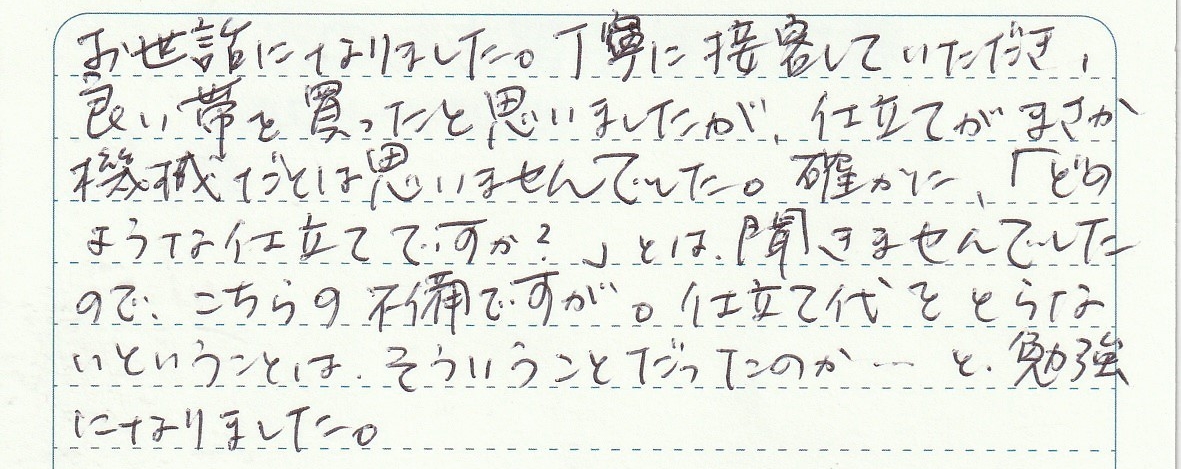 お世話になりました。丁寧に接客していただき、
良い帯を買ったと思いましたが、仕立てがまさか
機械だとは思いませんでした。確かに、「どの
ような仕立てですか？」とは、聞きませんでした
ので、こちらの不備ですが。仕立て代をとらな
いということは、そういうことだったのか…と、勉強
になりました。